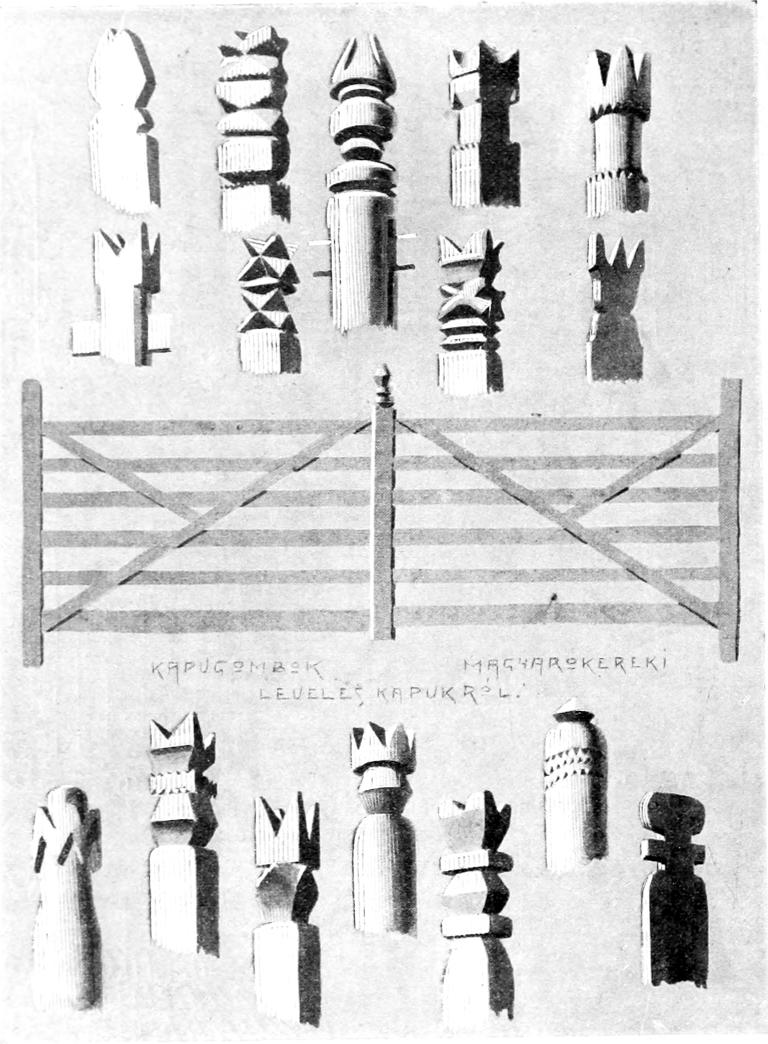 KAPUGOMBOK MAGYARÓKEREKI
LEVELES KAPUKRÓL.